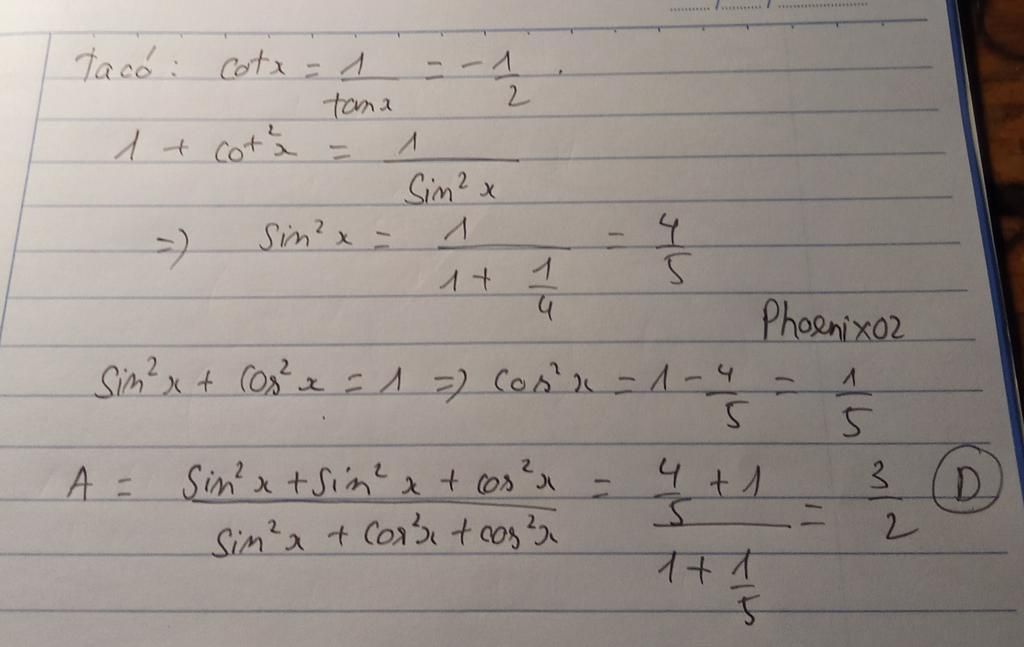 Ta có : cotx = 1/tanx = -1/2 .
1 + cot²x = 1/Sin²x
=) Sin²x = 1/(1 + 1/4) = 4/5
Phoenix02
Sin²x + Cos²x = 1 =) Cos²x = 1 - 4/5 = 1/5
A = (Sin²x + Sin²x + cos²x)/(Sin²x + Cos²x + cos²x) = (4/5 + 1)/(1 + 1/5) = 3/2 D